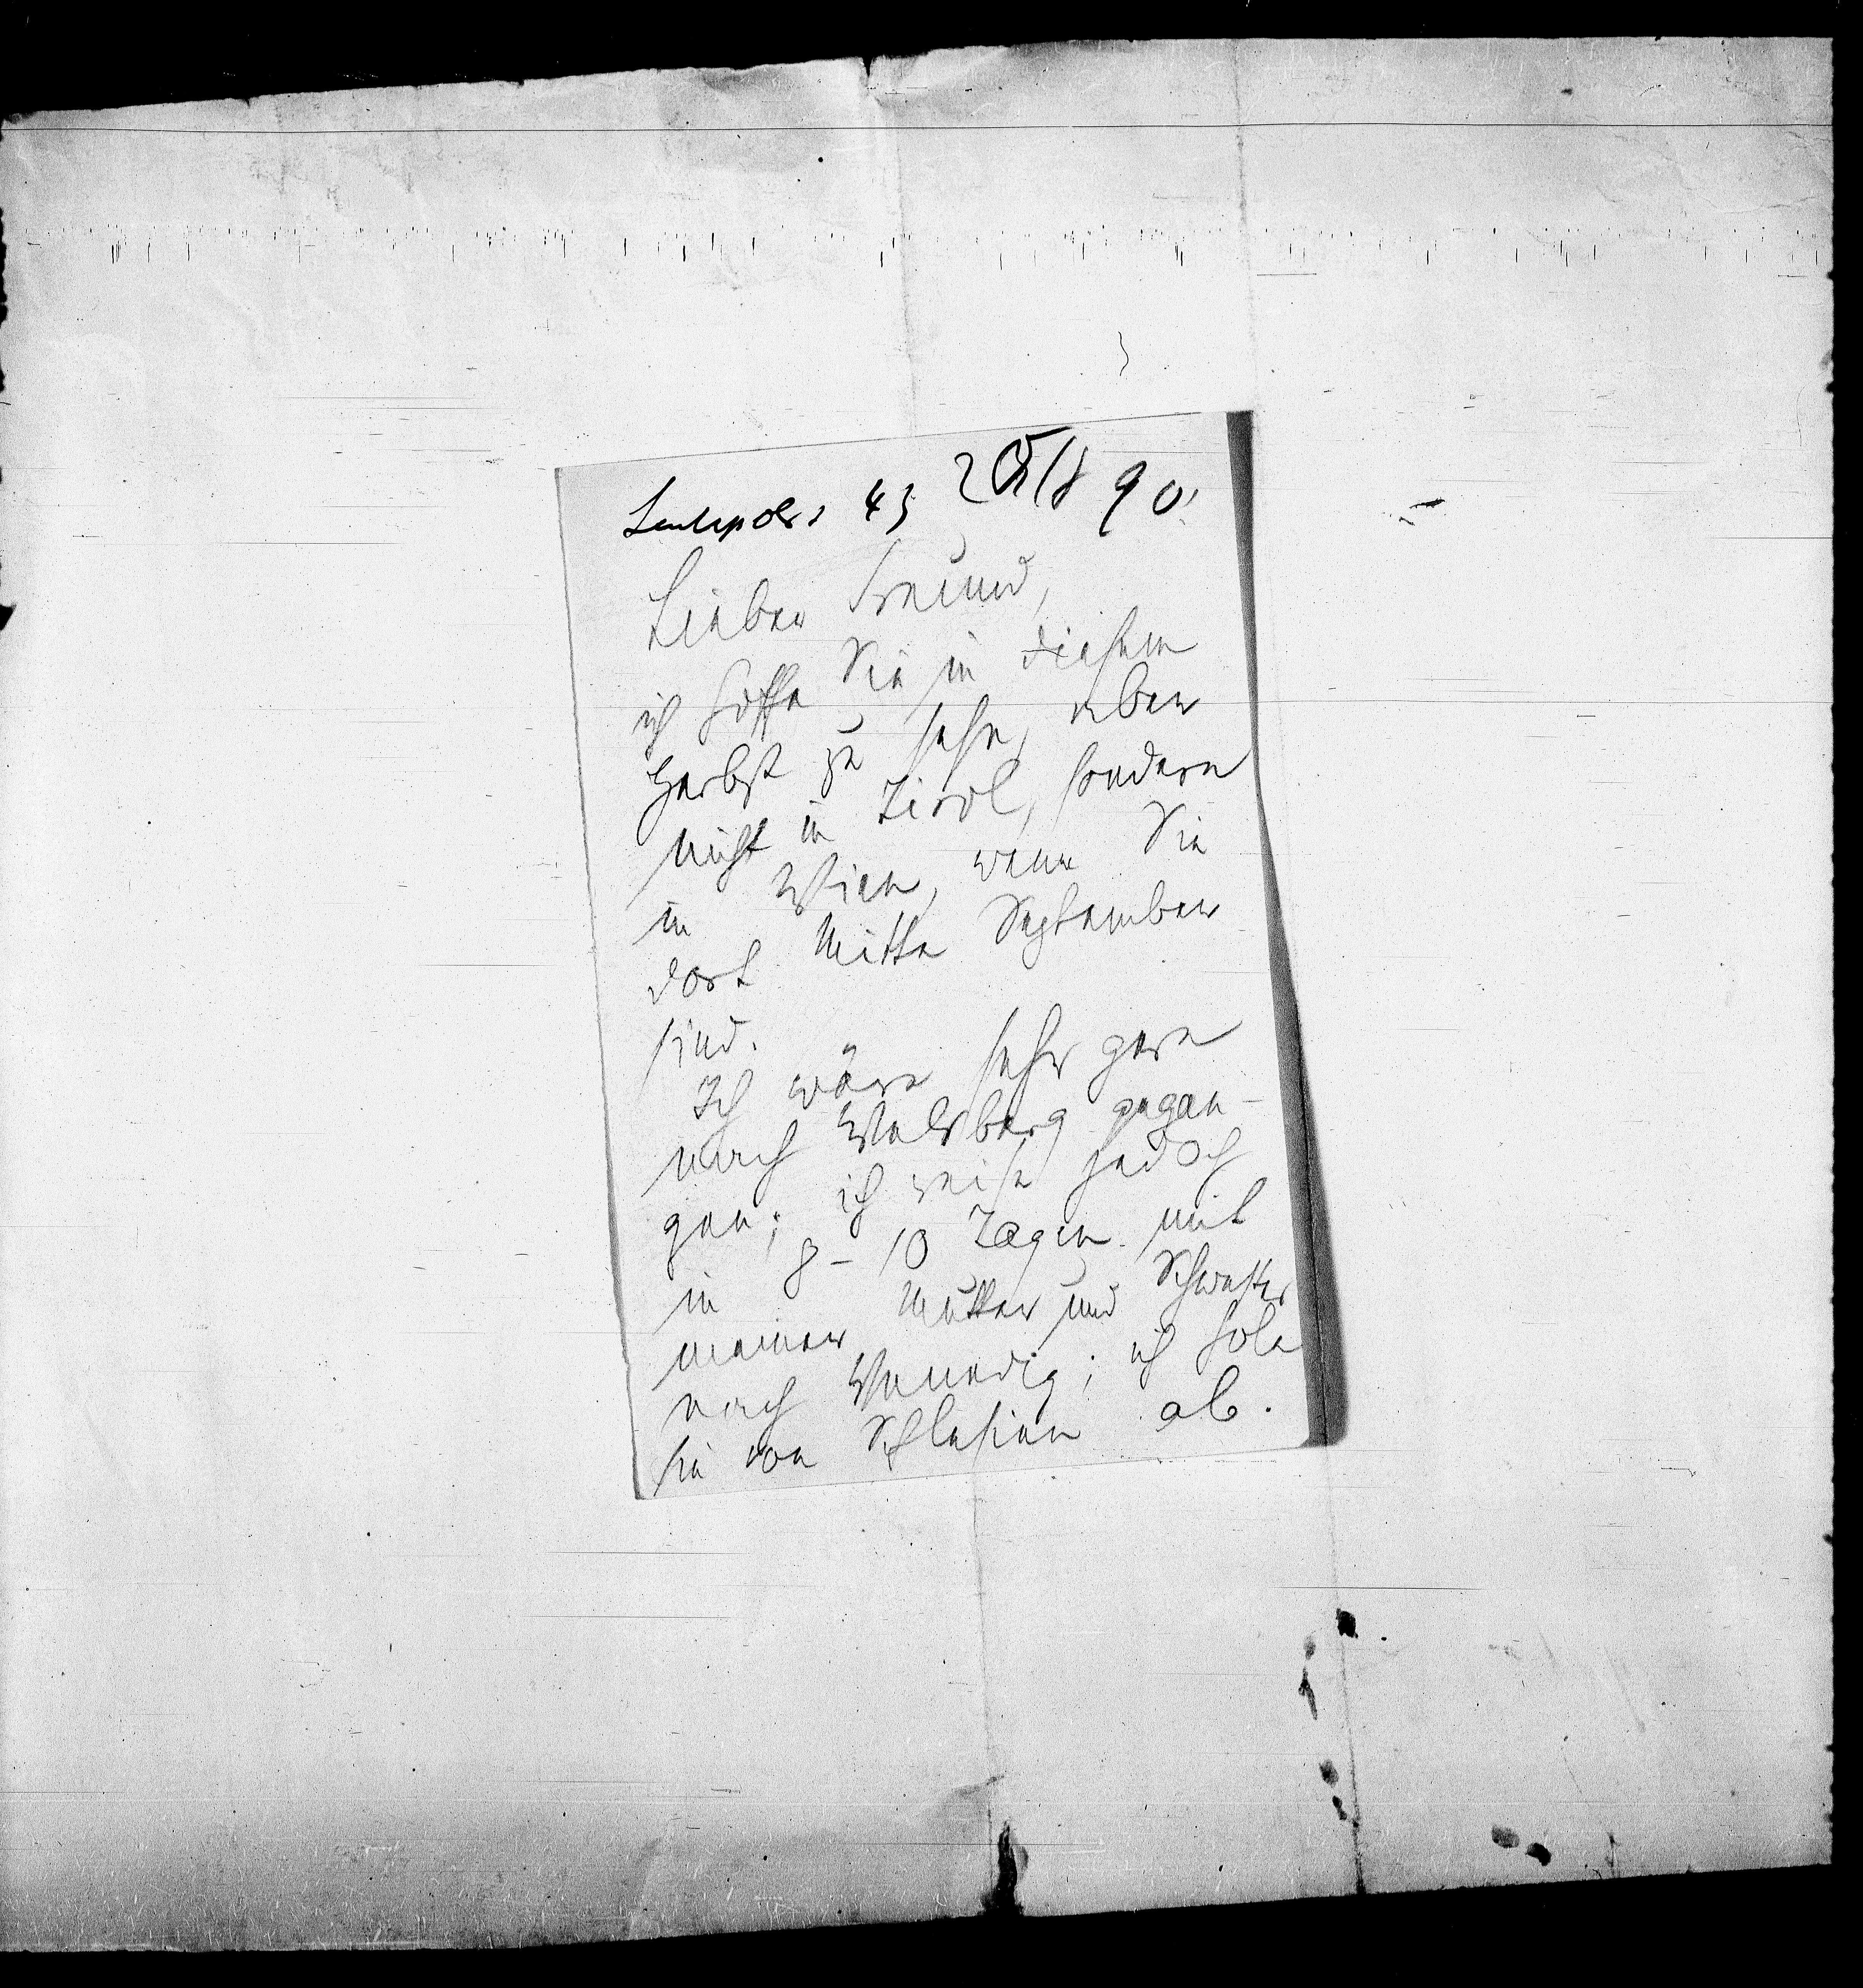 43 25/8 90.
Lieber Freund,
ich hoffe Sie in diesem
Herbst zu sehn, aber
nicht in Tirol, sondern
in Wien, wenn Sie
dort Mitte September
sind.
Ich wäre sehr gern
nach Welsberg gegan-
gen; ich reise jedoch
in 8-10 Tagen mit
meiner Mutter und Schwester
nach Venedig; ich hole
sie von Schlesien ab.